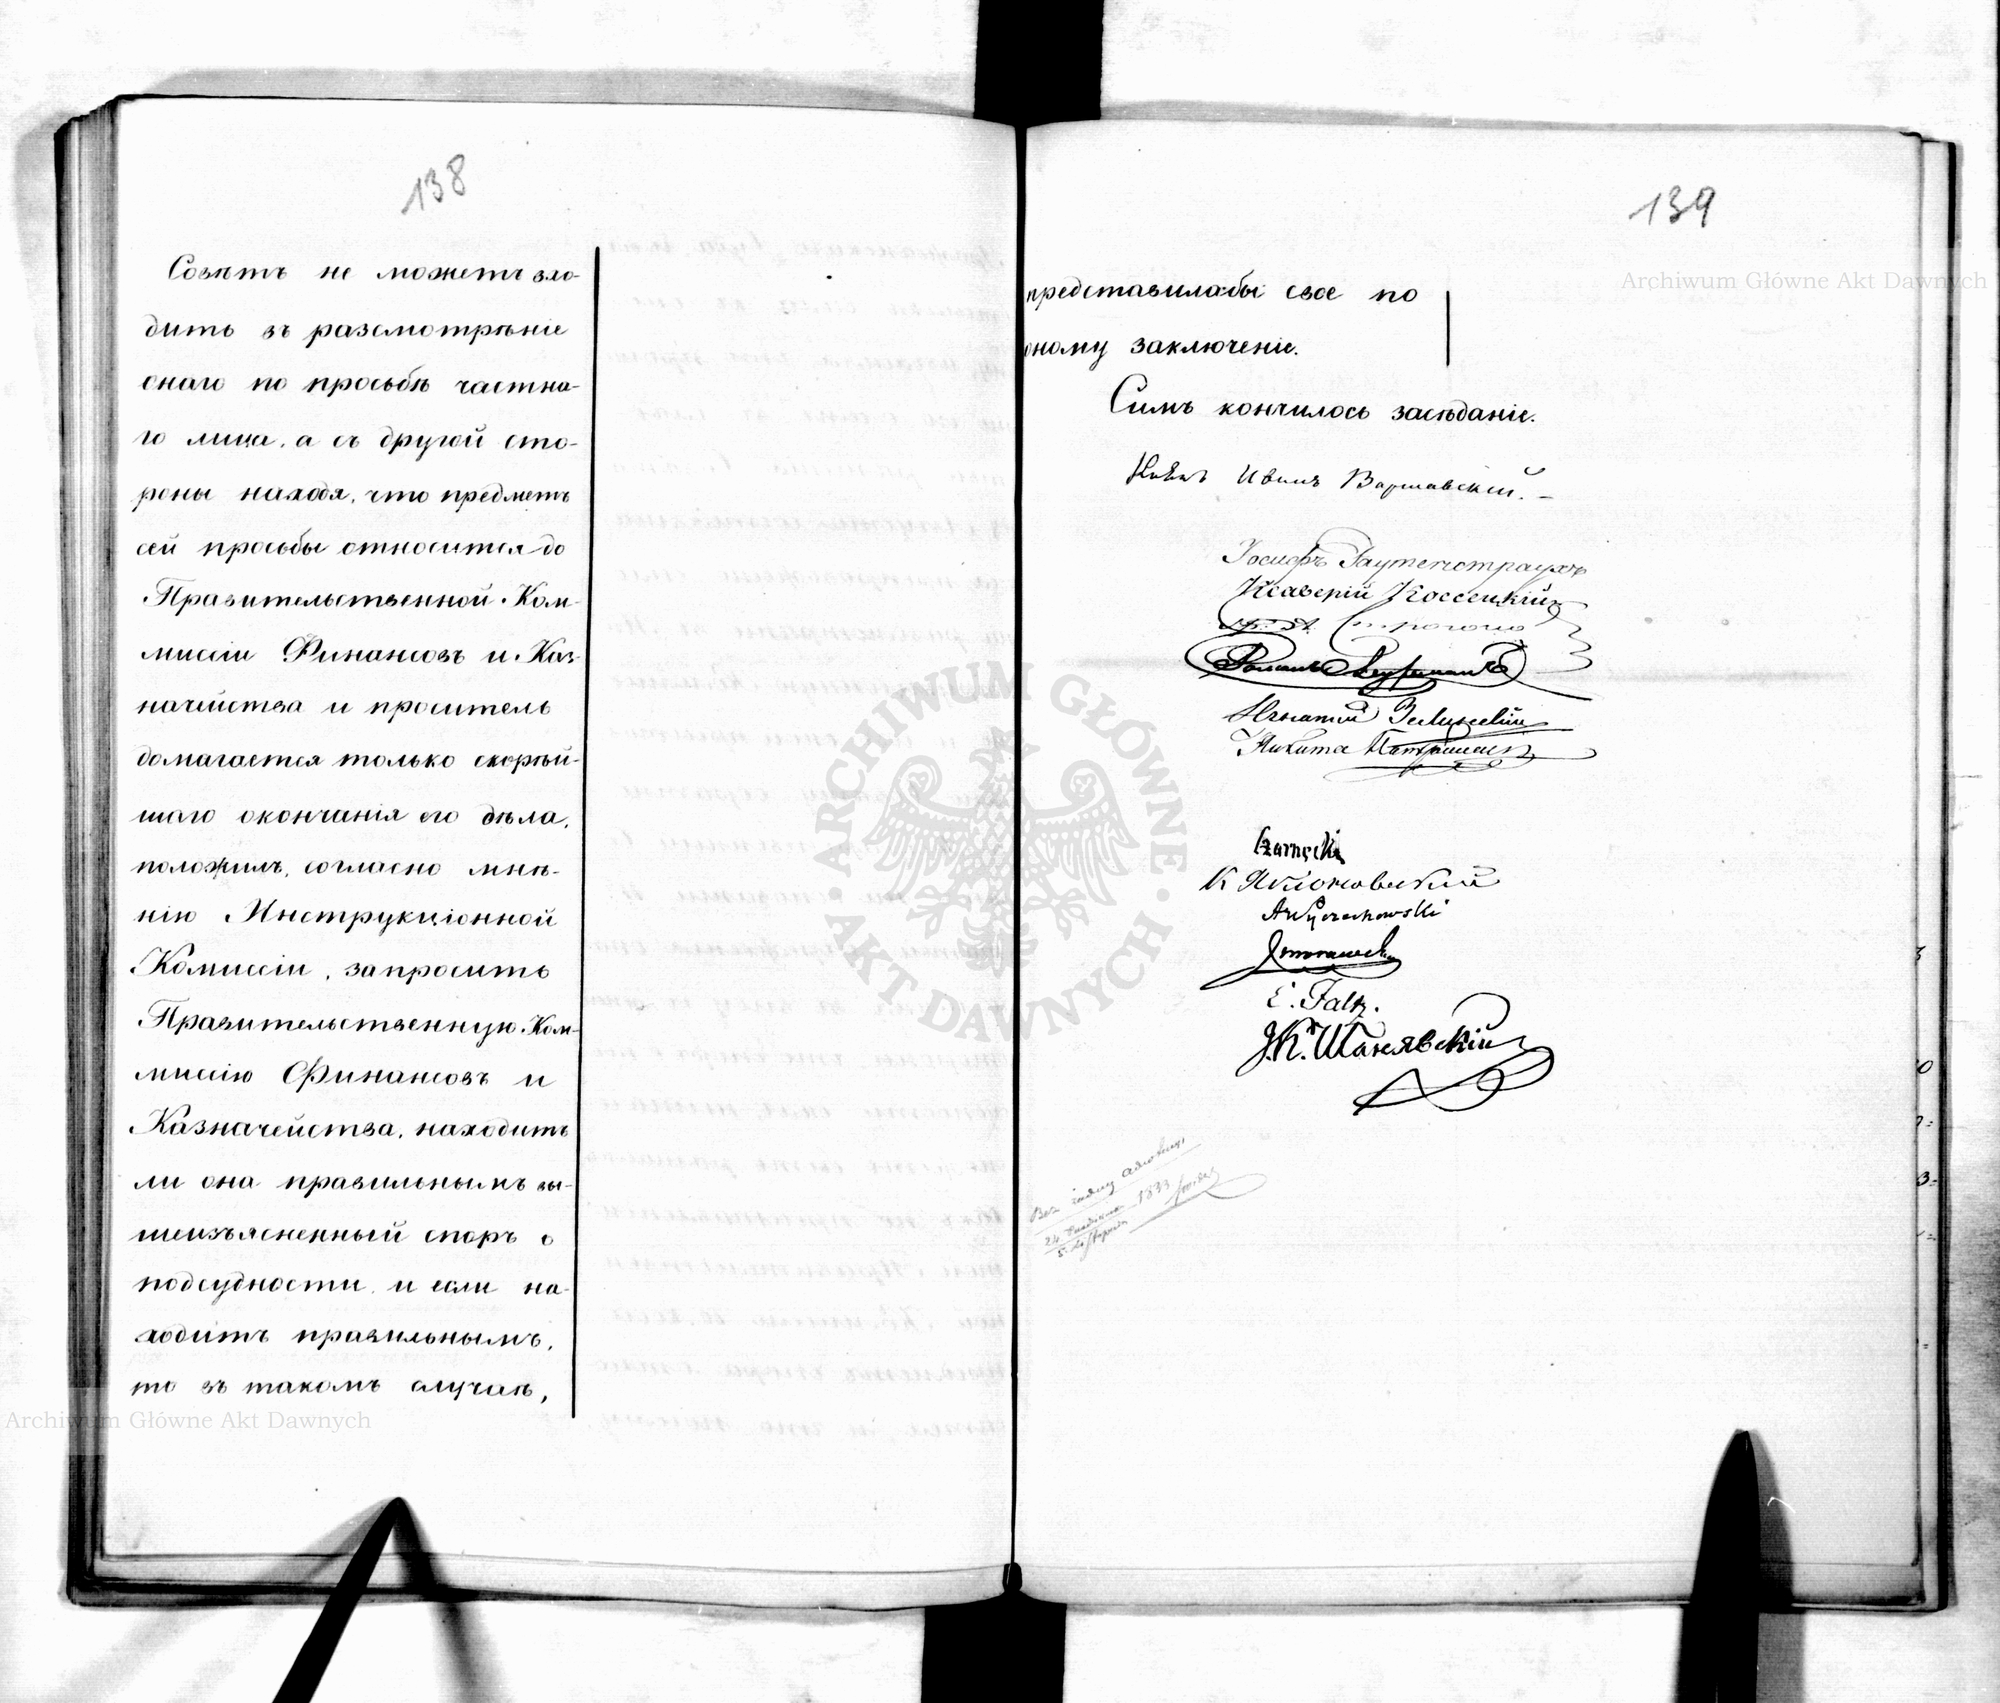 138
Совѣтъ не можетъ вхо-
дить въ разсмотрѣніе
онаго по просьбѣ частна-
го лица, а съ другой сто-
роны находя, что предметъ
сей просьбы относится до
Правительственной Ком-
миссіи Финансовъ и Каз-
начейства и проситель
домагается только скорѣй-
шаго окончанія его дѣла,
положилъ, согласно мнѣ-
нію Инструкціонной
Комиссіи, запросить
Правительственную Ком-
миссію Финансовъ и
Казначейства, находитъ
ли она правильнымъ вы-
шеизъясненный споръ о
подсудности, и если на-
ходитъ правильнымъ,
то въ такомъ случаѣ,
139
представила бы свое по
оному заключеніе.
Симъ кончилось засѣданіе.
Князь Иванъ Варшавскій.
Іосифъ Раутенстраухъ
Ксаверій Коссецкій
Игнатій Зелинскій
Никита
Czarnecki
К Яблоновскій
A Wyczechowski
E. Faltz.
J. K. Шанявскій
1833
Archiwum Główne Akt Dawnych
Archiwum Główne Akt Dawnych
ARCHIWUM GŁÓWNE AKT DAWNYCH